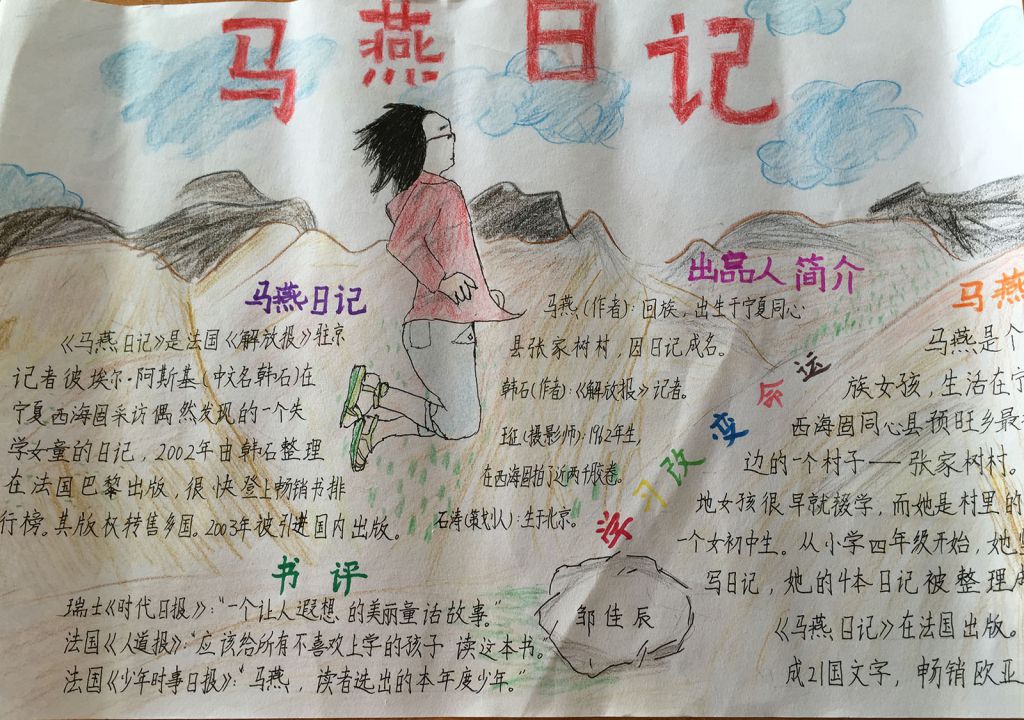 马燕日记
马燕日记
《马燕日记》是法国《解放报》驻京
记者彼埃尔·阿斯基(中文名韩石)在
宁夏西海固采访偶然发现的一个失
学女童的日记，2002年由韩石整理
在法国巴黎出版，很快登上畅销书排
行榜。其版权转售多国。2003年被引进国内出版。
书评
瑞士《时代日报》：“一个让人遐想的美丽童话故事。”
法国《人道报》：“应该给所有不喜欢上学的孩子读这本书。”
法国《少年时事日报》：“马燕，读者选出的本年度少年。”
出品人简介
马燕(作者)：回族，出生于宁夏同心
县张家树村，因日记成名。
韩石(作者)：《解放报》记者。
(摄影师)：1962年生，
在西海固拍了近两千胶卷。
石涛(策划人)：生于北京。
学习改变命运
邹佳辰
马燕
马燕是个
族女孩，生活在宁
西海固同心县预旺乡最
边的一个村子——张家树村。
地女孩很早就辍学，而她是村里的
一个女初中生。从小学四年级开始，她
写日记，她的4本日记被整理
《马燕日记》在法国出版。
成21国文字，畅销欧亚